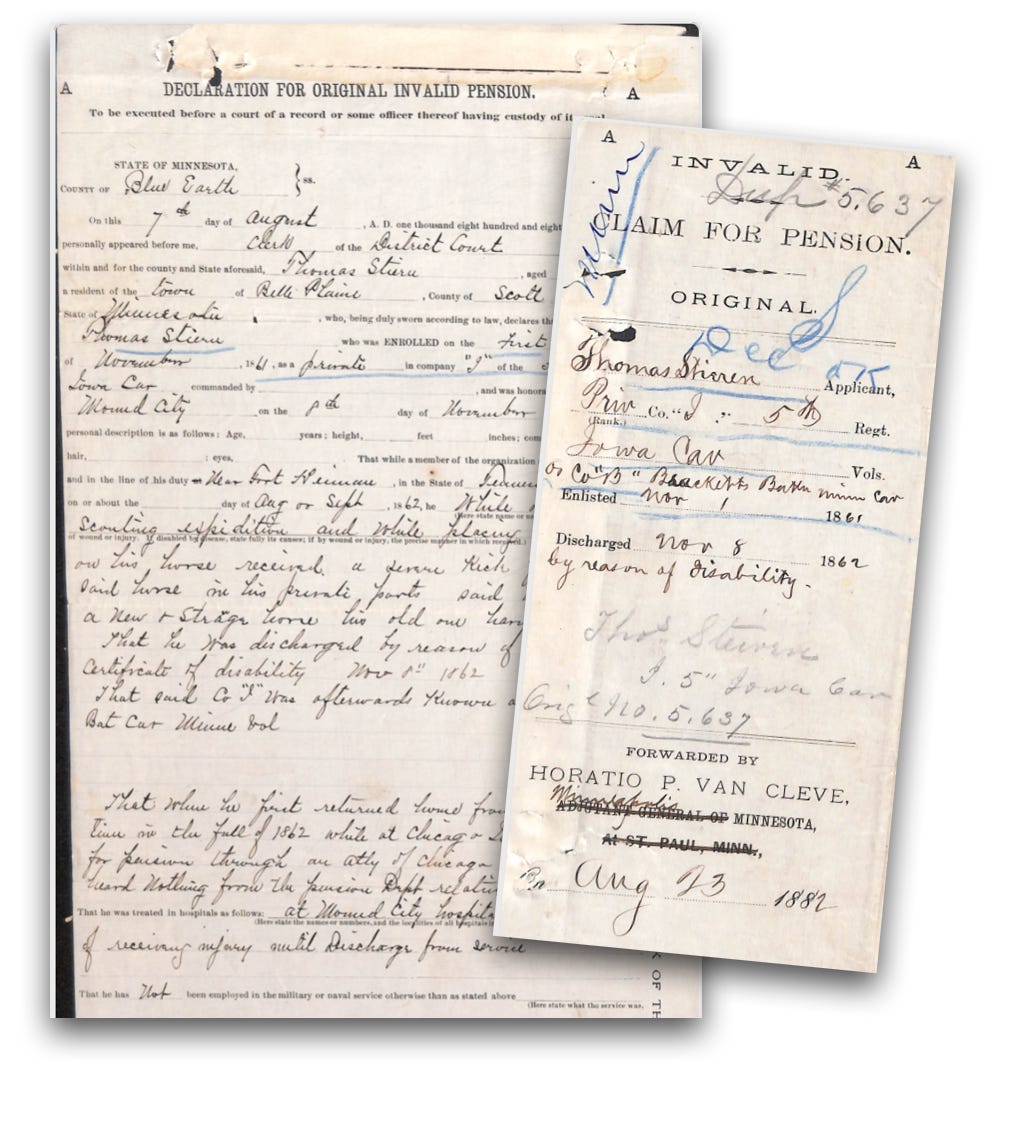 A
DECLARATION FOR ORIGINAL INVALID PENSION.
A
To be executed before a court of a record or some officer thereof having custody of
STATE OF MINNESOTA,
COUNTY OF Blue Earth } ss.
On this 7th day of August, A. D. one thousand eight hundred and eight
personally appeared before me, Clerk of the District Court
within and for the county and State aforesaid, Thomas Stieru, aged
a resident of the town of Belle Plaine, County of Scott
State of Minnesota, who, being duly sworn according to law, declares
Thomas Stieru who was ENROLLED on the First
of November, 1861, as a private in company "I" of the
Iowa Cav commanded by, and was honora
Mound City on the 8th day of November
personal description is as follows: Age, years; height, feet inches; com
hair, ; eyes, That while a member of the organization
and in the line of his duty Near Fort Heiman, in the State of
on or about the day of Aug or Sept, 1862, he While
(Here state name or
Scouting expidition and While placing
of wound or injury. If disabled by disease, state fully its causes; if by wound or injury, the precise manner in which received.)
on his horse received a severe Kick
said horse in his private parts said
a New & Strage horse his old one
That he Was discharged by reason of
Certificate of disability Nov 8" 1862
That said Co "I" Was afterwards Known
Bat Cav Minne Vol
That when he first returned home
time in the fall of 1862 while at Chicago
for pension through an atty of Chicago
heard Nothing from the pension Dept
That he was treated in hospitals as follows: at Mound City
(Here state the names or numbers, and the localities of all hospitals
of receiving injury until Discharge from service
That he has Not been employed in the military or naval service otherwise than as stated above
(Here state what the service was,
OF TH
A
A
INVALID.
Dup #5.637
CLAIM FOR PENSION.
Minn
ORIGINAL.
Dec
Thomas Stieren Applicant,
Priv Co. "I" 5th Regt.
(Rank.)
Iowa Cav Vols.
or Co "B" Bracketts Batn minn Cav
Enlisted Nov 1 1861
Discharged Nov 8 1862
by reason of disability.
Thos Steiren
I. 5" Iowa Cav
Orig No. 5.637
FORWARDED BY
HORATIO P. VAN CLEVE,
Minneapolis
ADJUTANT GENERAL OF MINNESOTA,
At ST. PAUL, MINN.,
Aug 23 1882